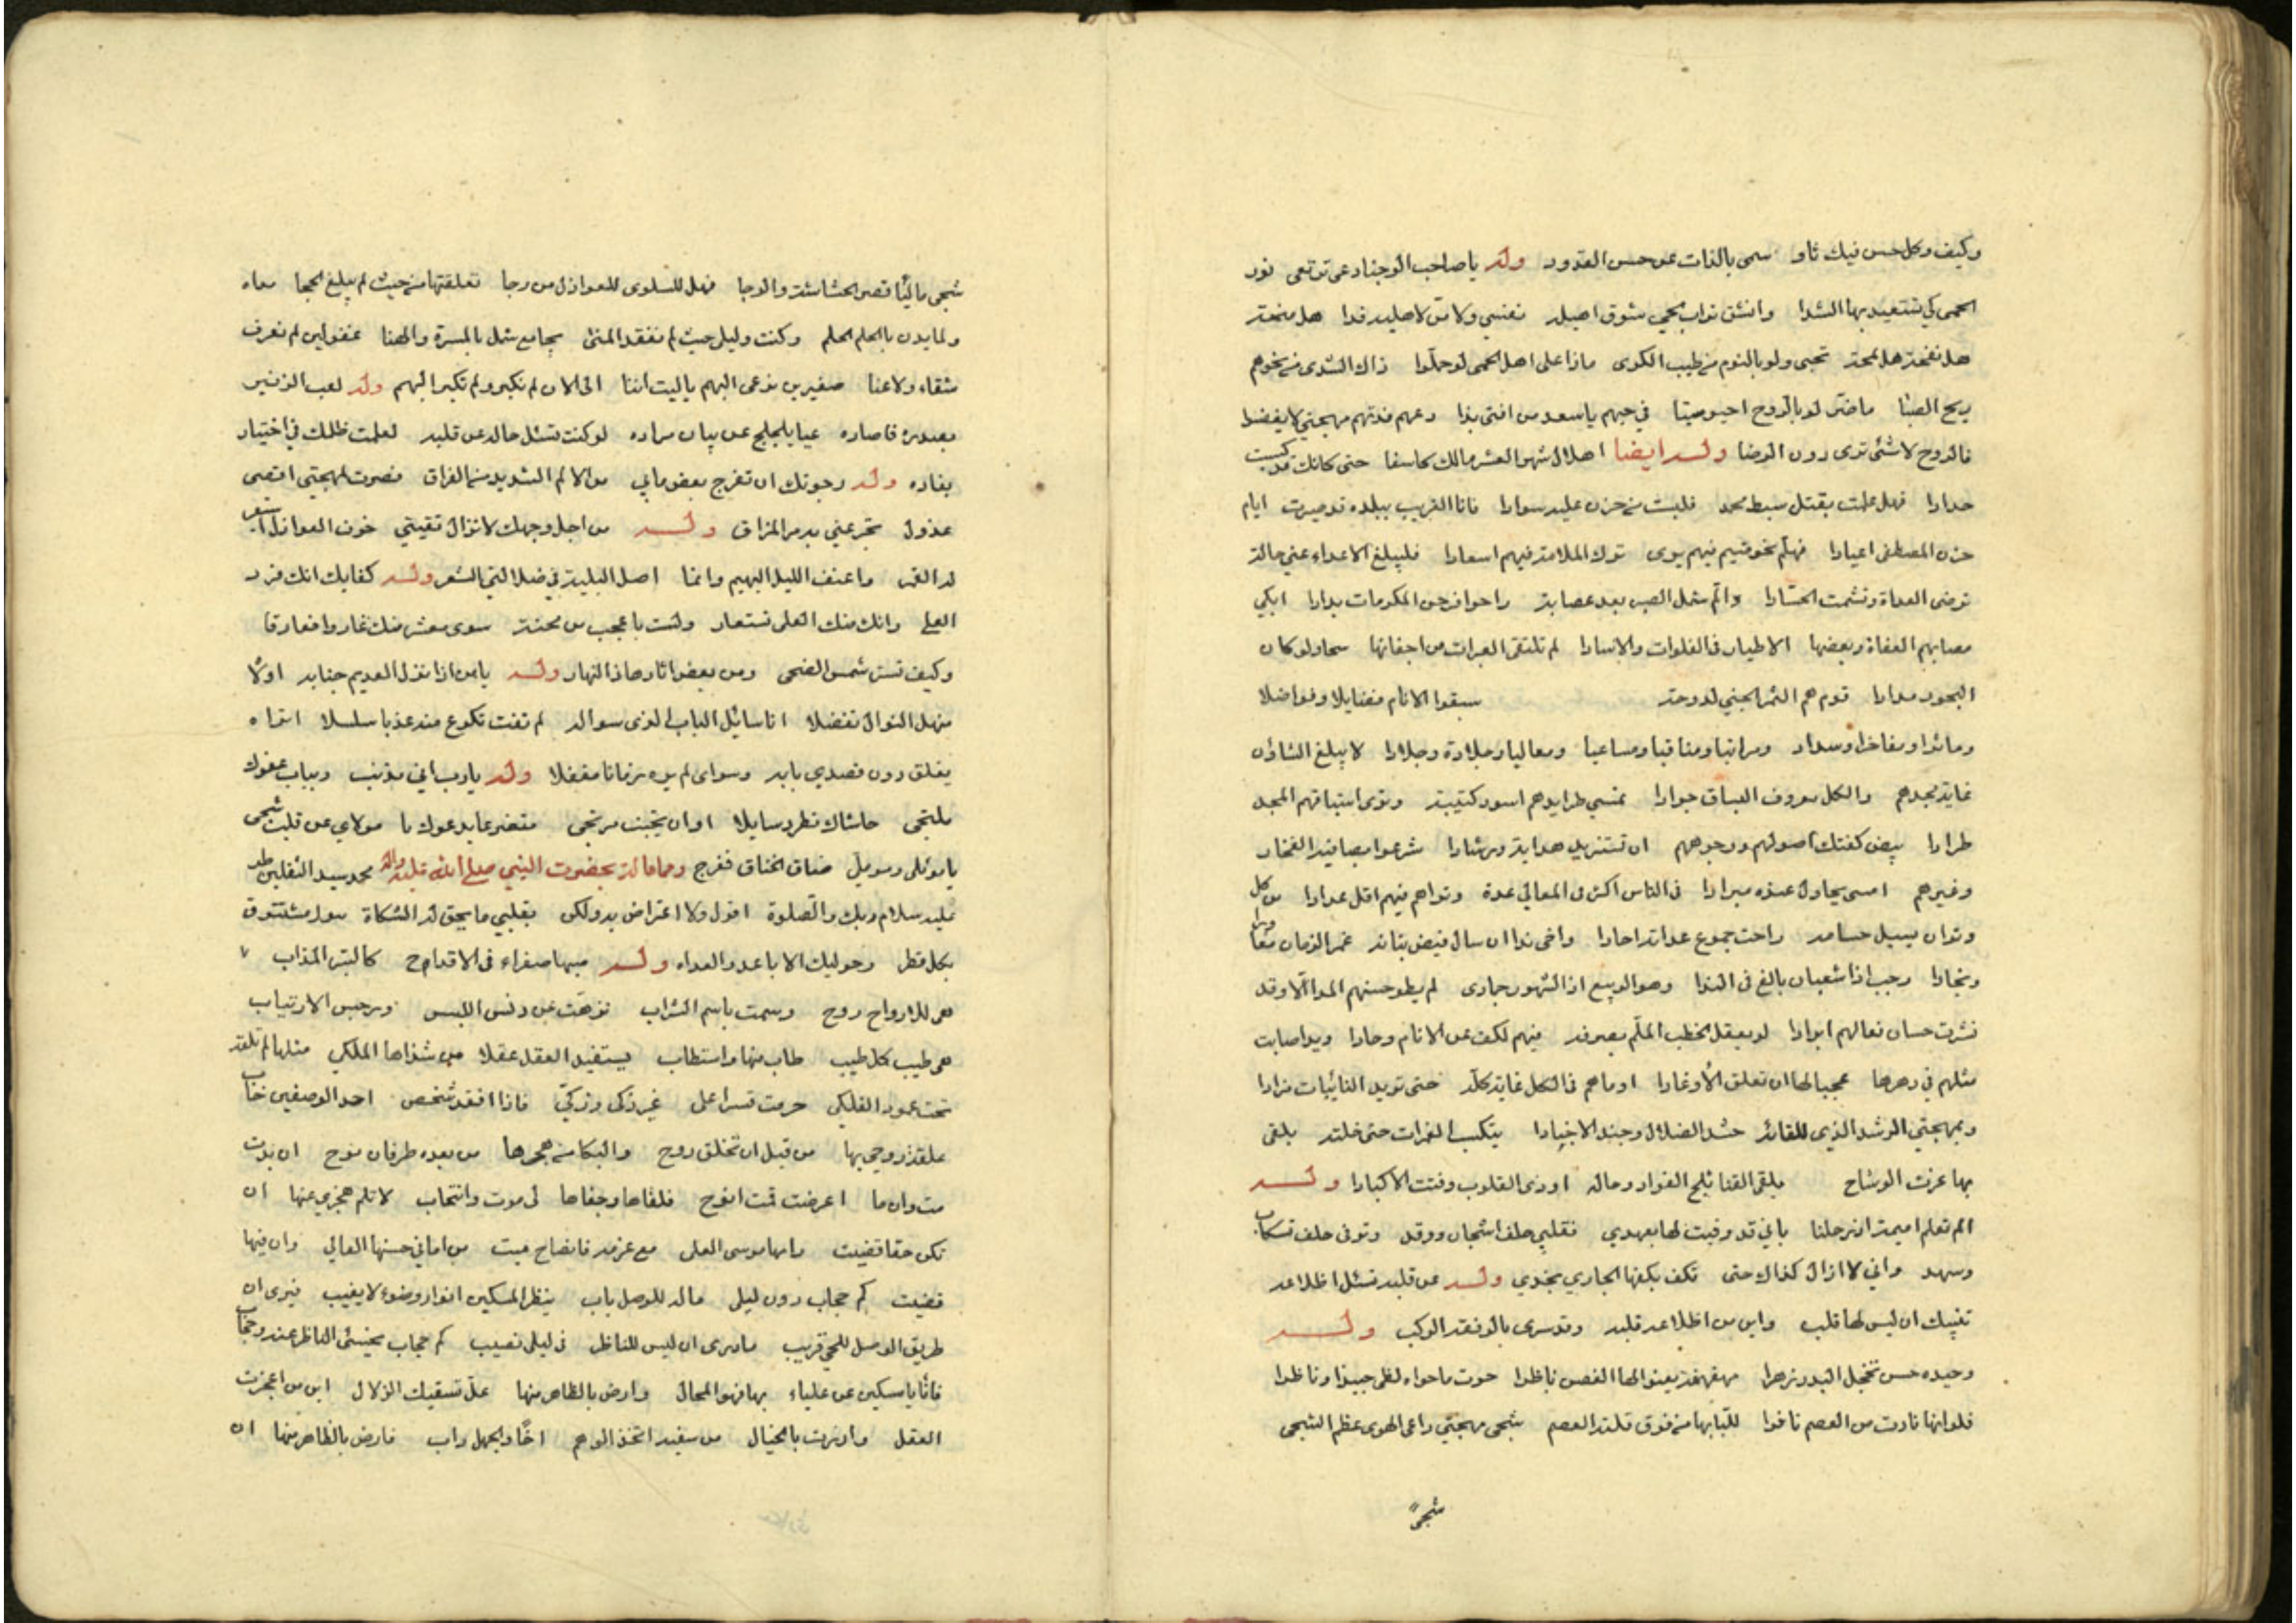 وكيف وكل حسن فيك ثاو سمى بالذات عن حسن القدود وله يا صاحب الوجنا دعى ترتعى نور
الحمى كي تستعيد بها الشذا وانشق تراب الحمى شوق اهيله نفسي ولا من لاهليه فدا هل منحة
هل نفحة هل لمحة تحيى ولو بالنوم من طيب الكرى ماذا على اهل الحمى لو حملوا ذاك الشذى من نحوهم
ريح الصبا ما ضر لو بالروح احيو ميتا في حبهم يا سعد من افتى بذا دعهم فدتهم مهجتي لا بغضوا
فالروح لا شئ ترى دون الرضا وله ايضا اهلال شهر العشر مالك كاسفا حتى كانك قد كسيت
حدادا فهل علمت بقتل سبط محمد فلبست من حزن عليه سوادا فانا الغريب ببلده قد صيرت ايام
حزن المصطفى اعيادا فهلم نحو فيهم يرى ترك الملامة فيهم اسعادا فليبلغ الاعداء عني حالة
ترضى العداة وتشمت الحسادا والم شمل الصبر بعد عصابة راحوا بدارا ابكي
مصابهم العفاة وبعضها الاطيار في الفلوات والاسادا لم تلتقى العبرات من اجفانها سحا ولو كان
البحور مدادا قوم هم الثمر الجني لدوحة سبقوا الانام فضايلا وفواضلا
وماثرا ومفاخرا وسداد ومراتبا ومناقبا ومساعيا ومعاليا وجلادة وجلادا لا يبلغ الشاؤن
غاية مجدهم والكل معروف السباق جوادا تمسي طرايدهم اسود كتيبة وترى استباقهم المجد
طرادا بيض كفتك اصولهم ووجوههم ان تستزيد هداية ورشادا شرعوا الفخار
وغيرهم امسى يحاول عنوه ميرادا في الناس اكثر في المعالي عدة وتراهم فيهم اقل عدادا من كل
وتران يسيل حسامه راحت جموع عداته احادا واخى ندا ان سال فيض بنانه غمر الزمان
ونجادا رجب اذا شعبان بالغ في الندا وهو الربيع اذ الشهور جمادى لم يطو حسنهم المدا الا وقد
نشرت حسان فعالهم ابرادا لو يعقل الخطب الملم بصرفه فيهم لكف عن الانام وحادا ويد اصابت
مثلهم في دهرها عجبا لها ان تعلق الأوغادا او ما هم في الكل غاية كله حتى تريد النائبات مرادا
وبمهجتي الرشد الذي للقائه حشد الضلال وجند الاجنادا يتكسب الغمرات حتى خلته يلقى
بها عرت الوشاح يلقى القنا ثلج الفواد وماله اوذى القلوب وفتت الاكبادا وله
الم تعلم اميمة ان رحلنا باني قد وفيت لها بعهدي فقلبي حلف اشجان ووقد وترفى حلف تسكاب
وسهد واني لا ازال كذاك حتى تكف بكفها الجاري بخدي وله عن قلبه تسئل اظلاعه
تنبيك ان ليس لها قلب واين من اظلاعه قلبه وقد سرى بالونقة الركب وله
وحيده حسن تخجل البدر زهرا مهفهفة يعنو الها الغصن ناظرا حوت ما حواه لظبى جيدا وناظرا
فلو انها نادت من العصم نافرا للباها من فوق قلته العصم شجى مهجتي داعى الهوى عظم الشجى
شجى
شجى ما لنا قصر الحشاشة والرجا فهل للسلوى للعواذل من رجا تعلقتها من حيث لم يبلغ الحجا مداه
ولما يدن بالحلم الحلم وكنت وليلى حيث لم نفقد المنى بجامع شمل بالمسرة والهنا غفولين لم نعرف
شقاء ولا عنا صغيرين نرعى البهم ياليت اننا الى الان لم نكبر ولم تكبر البهم وله لعب الزفير
بصدره فاصاره عيا يلجلج عن بيان مراده لو كنت تسئل حاله عن قلبه لعلمت ظلمك في اختيار
بعاده وله رجوتك ان تفرج بعض مابي من الالم الشديد من الفراق فصرت لمهجتي اقصى
عذول تجرعني به مر المذاق وله من اجل وجهك لا تزال تقيتي خوف العواذل
له القمر ما عنف الليل البهيم وانما اصل البلية في ضلالتي الشعر وله كفايك انك فرد
العلى وانك منك العلى تستعار ولست باعجب من محنة سوى معشر منك غاروا فغارقا
وكيف تستر شمس الضحى ومن بعض اثارها ذا النهار وله يا من اذا نزل العديم جنابه اولا
منهل النوال تفضلا انا سائل الباب الذى سواله لم تفت تكرع منه عذبا سلسلا اتراه
يغلق دون قصدي بابه وسواى لم يره زمانا مقفلا وله يا رب اني مذنب وبباب عفوك
ملتجى حاشاك تطرد سايلا او ان يخيب مرتجى متضرعا يدعوك يا مولاي عن قلب شجى
يا موئلي وموملي ضاق الخناق ففرج ومما قاله بحضرت النبي صلى الله عليه واله محمد سيد الثقلين طه
عليه سلام ربك والصلوة اقول ولا اعتراض به ولكن بقلبي ما يحق له الشكاة
بكل قطر وحوليك الاباعد والعداه وله صبها صفراء فى الاقداح كالتبر المذاب
هى للارواح روح وسمت باسم الشراب نزهت عن دنس اللبس ورجس الارتياب
هى طيب كل طيب طاب منها واستطاب يستفيد العقل عقلا من شذاها الملكي مثلها لم تلقه
تحت عمود الفلكي حرمت قسرا على غير ذكى وزكي فاذا افقد شخص احد الوصفين خاب
علقت روحي بها من قبل ان تخلق روح والبكا من هجرها من بعده طوفان نوح ان بدت
مت وان ما اعرضت قمت انوح فلقاها وجفاها لى موت وانتحاب لا تلم هجزي عنها ان
تكن حقا قضيت رامها موسى العلى مع عزمه فانصاح ميت من اماني حسنها العالي وان فيها
قضيت كم حجاب دون ليلى ماله للوصل باب ينظر المسكين انوار وضوء لا يغيب فيرى ان
طريق الوصل للحي قريب ما درى ان ليس للناظر فى ليلى نصيب كم حجاب يخسئ الناظر عنه وحجاب
فانأ يا مسكين عن علياء بها فهو المحال وارض بالظاهر منها عل تسقيك الزلال اين من اعجزت
العقل وازرت بالخيال من سفيه اتخذ الوهم اخا والجهل داب فارض بالظاهر منها ان